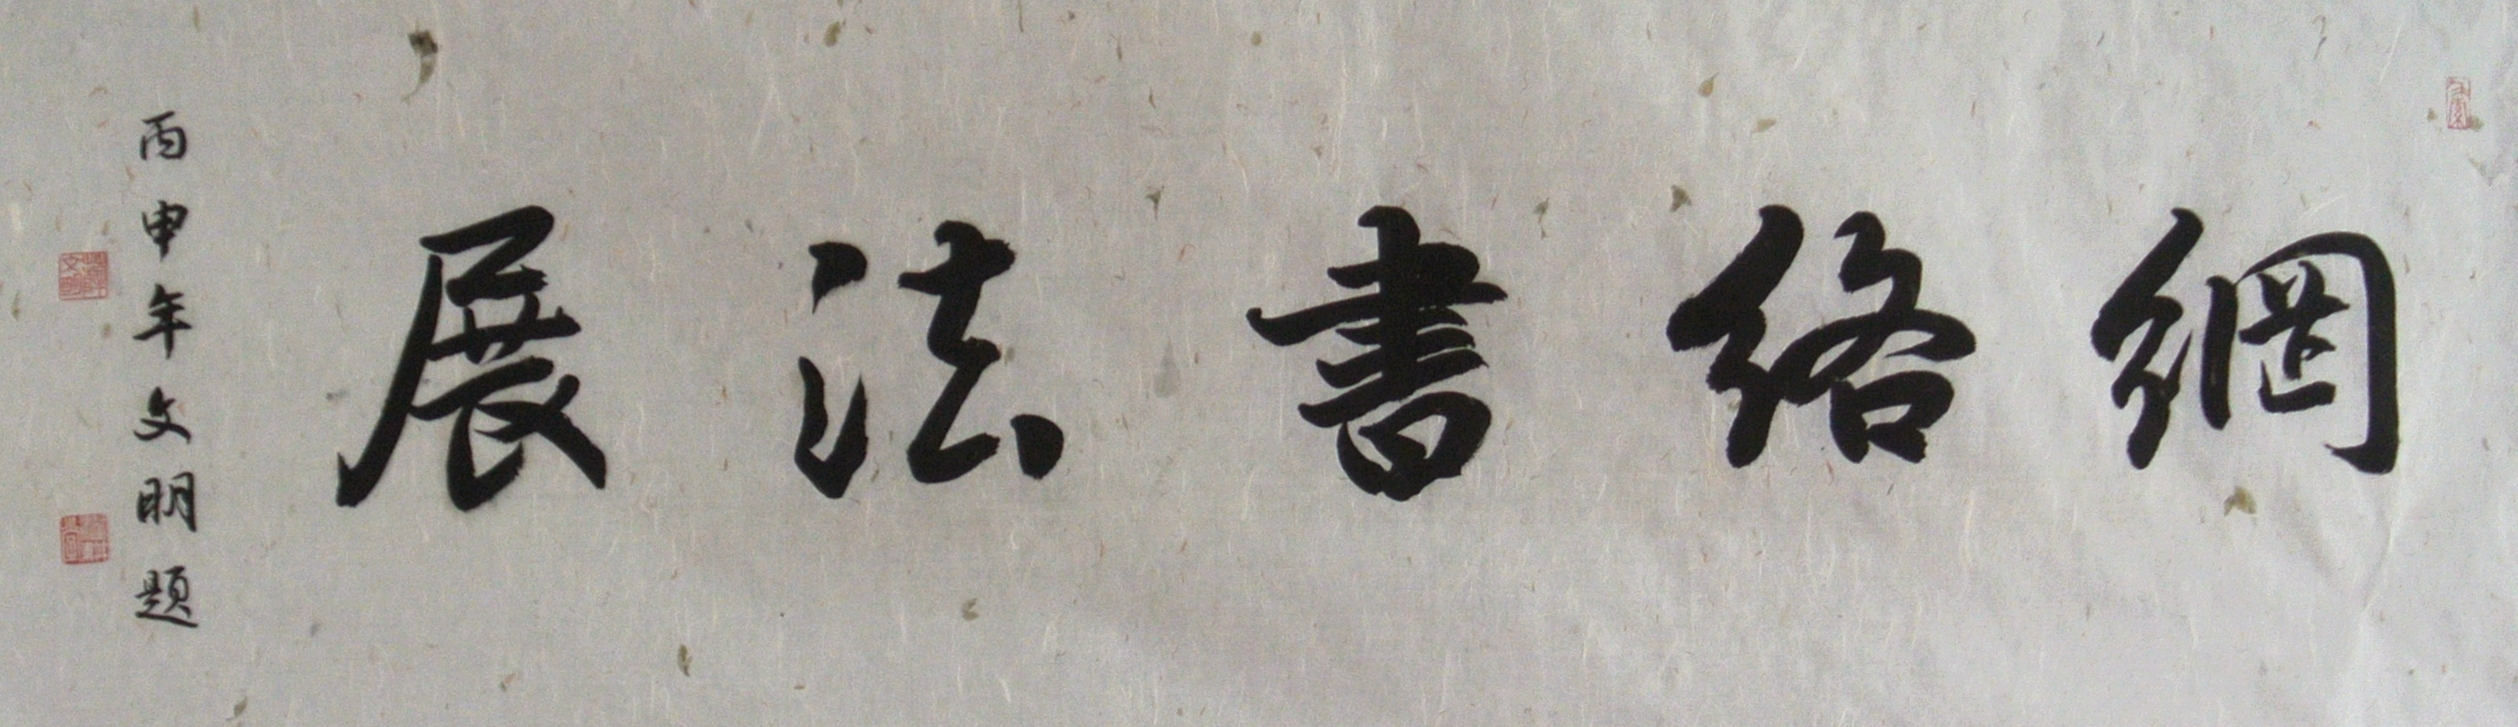 網絡書法展
丙申年文明題